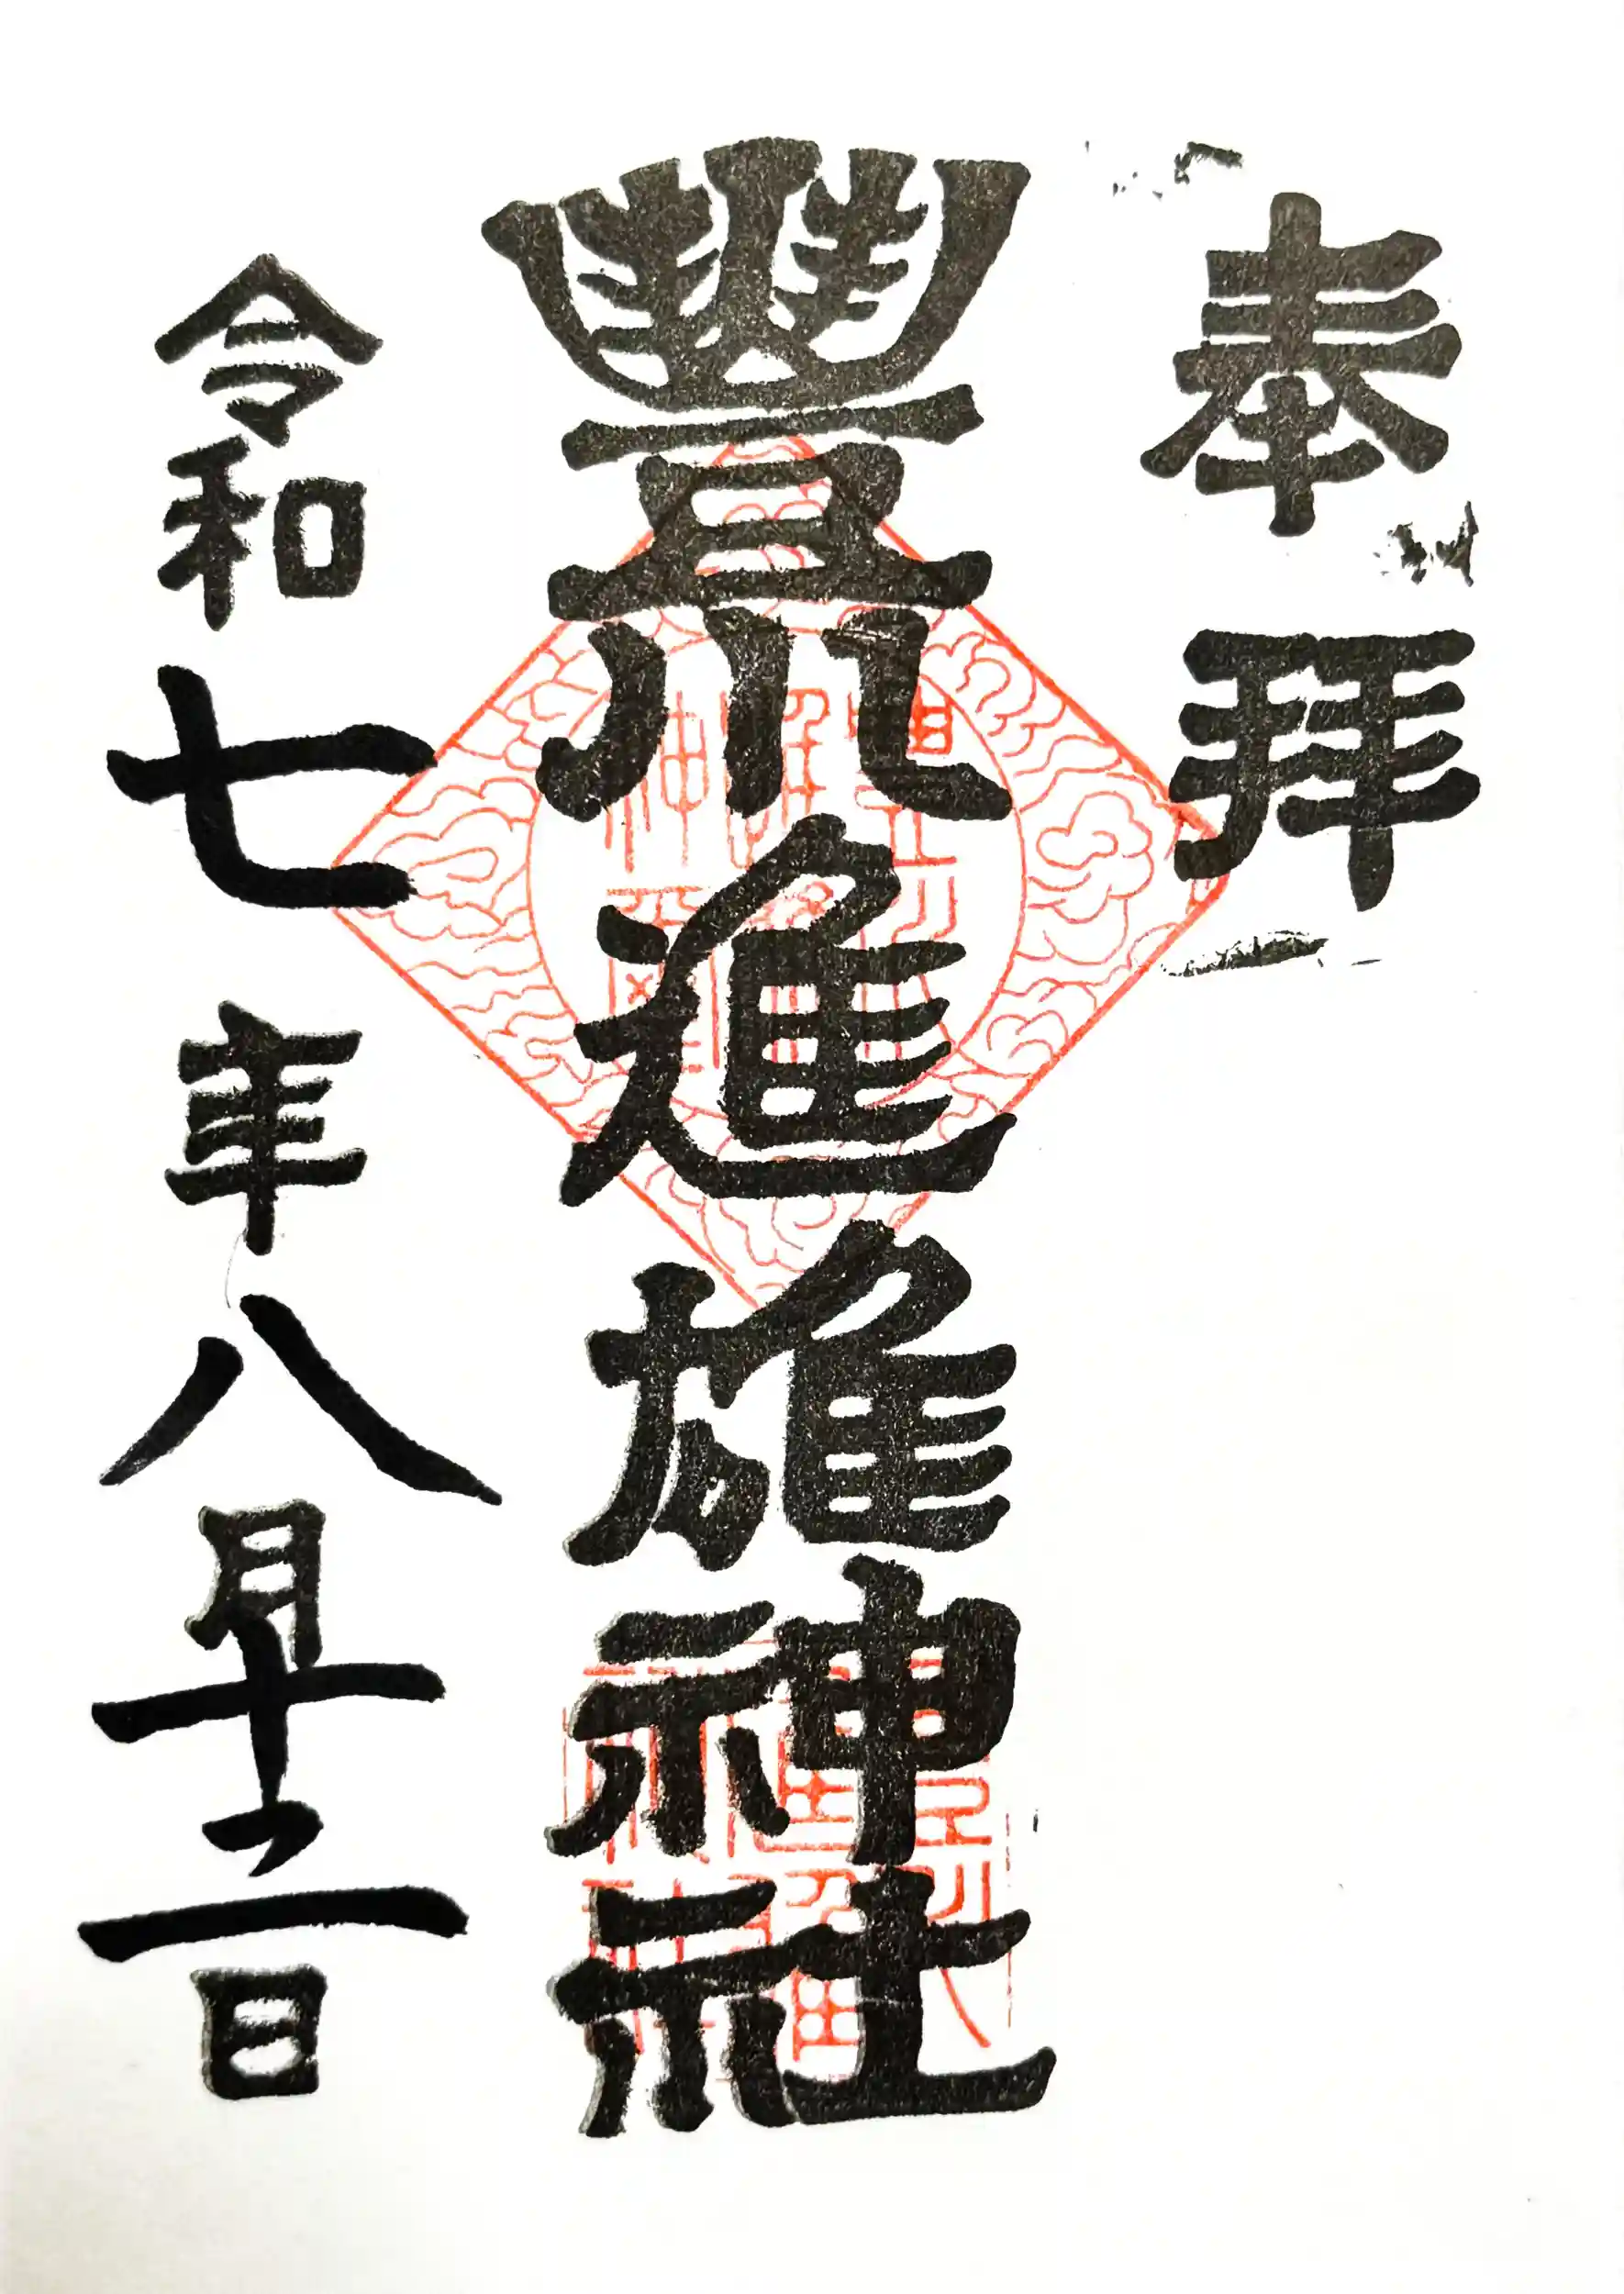 奉拜
豐川進雄神社
令和七年八月十二日